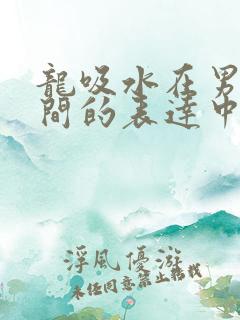 龍吸水在男
間的表達中
浮風優游
未經同意禁止轉載